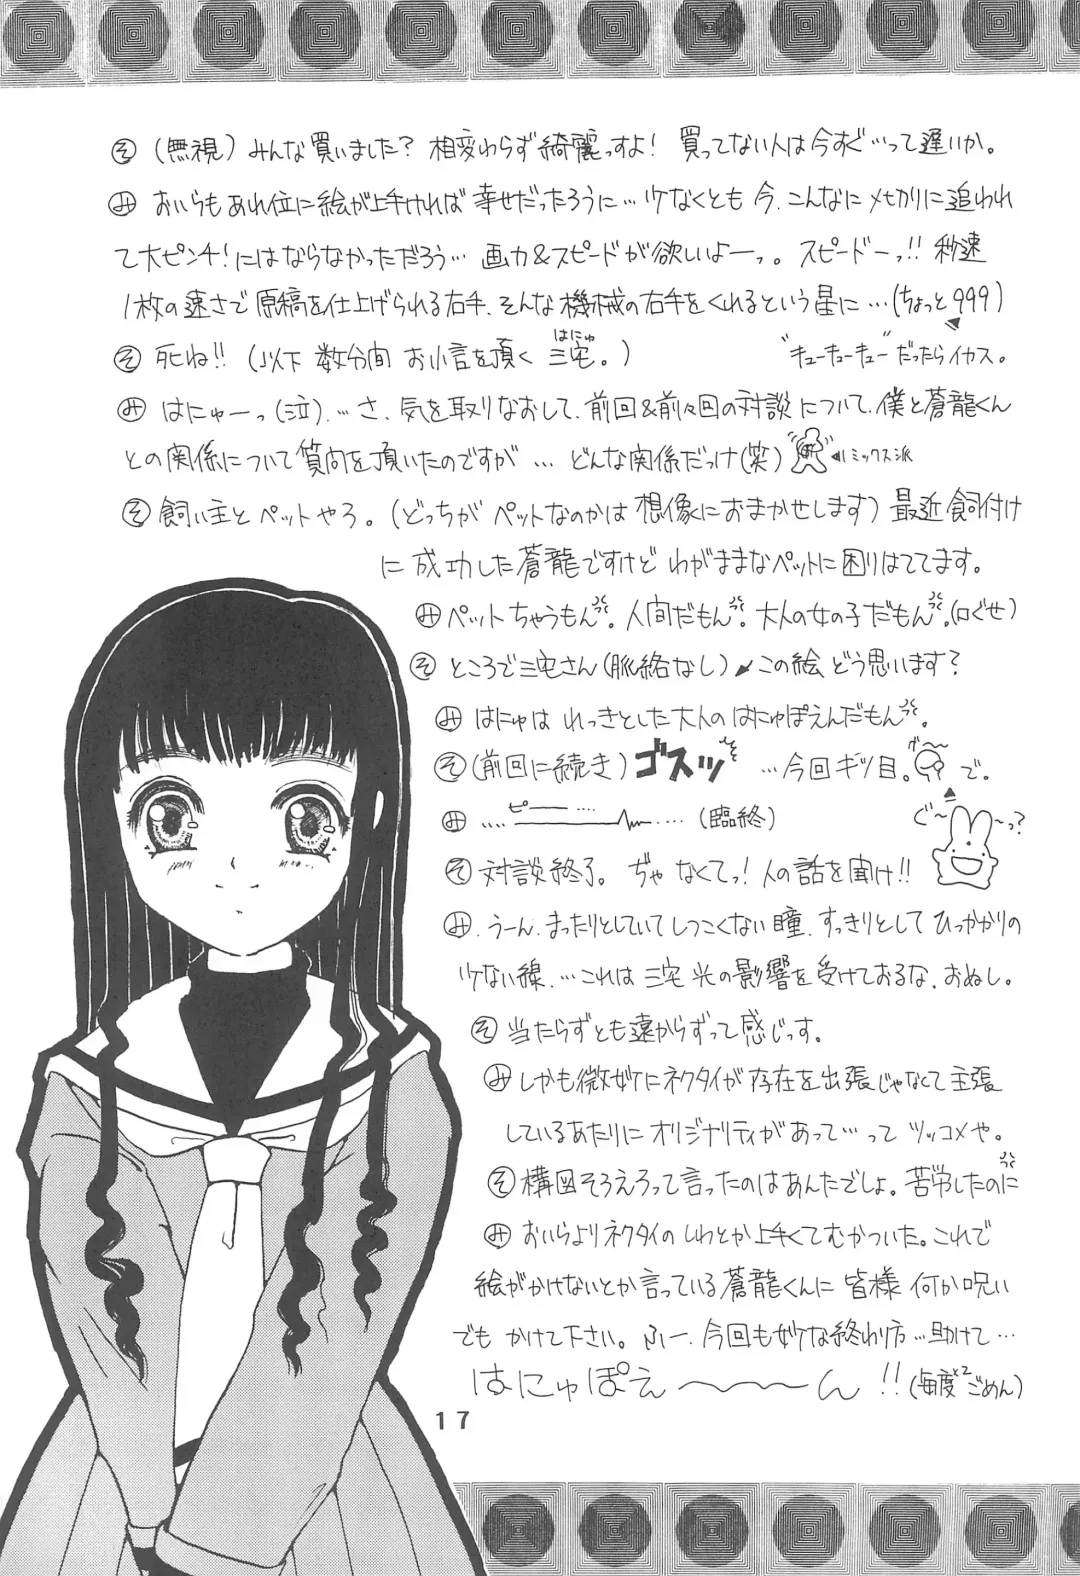 そ (無視) みんな買いました? 相変わらず綺麗っすよ! 買ってない人は今すぐ…って遅いか。
み おいらもあれ位に絵が上手ければ幸せだったろうに…少なくとも今、こんなにメ切りに追われ
て大ピンチ!にはならなかっただろう… 画力&スピードが欲しいよーっ。スピードーっ!! 秒速
1枚の速さで原稿を仕上げられる右手、そんな機械の右手をくれるという星に…(ちょっと999)
そ 死ね!! (以下 数分間 お小言を頂く 三宅。)
はにゅ
"キューキューキュー"だったらイカス。
み はにゅーっ(泣)…さ、気を取りなおして、前回&前々回の対談について、僕と蒼龍くん
との関係について質問を頂いたのですが … どんな関係だっけ(笑)
リミックス派
そ 飼い主とペットやろ。(どっちがペットなのかは想像におまかせします) 最近餌付け
に成功した蒼龍ですけど わがままなペットに困りはててます。
み ペットちゃうもん。人間だもん。大人の女の子だもん。(口ぐせ)
そ ところで三宅さん(脈絡なし) この絵 どう思います?
み はにゅは れっきとした大人の はにゅぽえんだもん。
そ (前回に続き) ゴスッ …今回ギリ目。で。
み …. ピー …. …. (臨終)
ぐ〜 〜っ?
そ 対談終了。 ぢゃ なくてっ! 人の話を聞け!!
み、うーん、まったりとしていてしつこくない瞳、すっきりとして ひっかかりの
少ない線、…これは 三宅 光の影響を受けておるな、おぬし。
そ 当たらずとも遠からずって感じっす。
み しかも微妙にネクタイが 存在を出張じゃなくて主張
しているあたりに オリジナリティがあって…って ツッコメや。
そ 構図そろえろって言ったのはあんたでしょ。苦労したのに
み おいらよりネクタイの しわとか上手くてむかついた。これで
絵がかけないとか言っている蒼龍くんに 皆様 何か呪い
でも かけて下さい。ふー、今回も妙な終わり方…助けて…
はにゅぽえ〜〜〜ん !! (毎度×2 ごめん)
17